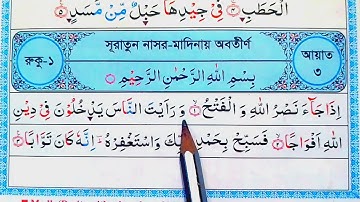 الْحَطَبِ ۝ فِيْ جِيْدِهَا حَبْلٌ مِّنْ مَّسَدٍ ۝
রুকু-১
সূরাতুন নাসর-মাদিনায় অবতীর্ণ
আয়াত ৩
بِسْمِ اللهِ الرَّحْمٰنِ الرَّحِيْمِ
اِذَا جَآءَ نَصْرُ اللهِ وَ الْفَتْحُ ۝ وَ رَاَيْتَ النَّاسَ يَدْخُلُوْنَ فِيْ دِيْنِ
اللهِ اَفْوَاجًا ۝ فَسَبِّحْ بِحَمْدِ رَبِّكَ وَ اسْتَغْفِرْهُ ؔ اِنَّهٗ كَانَ تَوَّابًا ۝